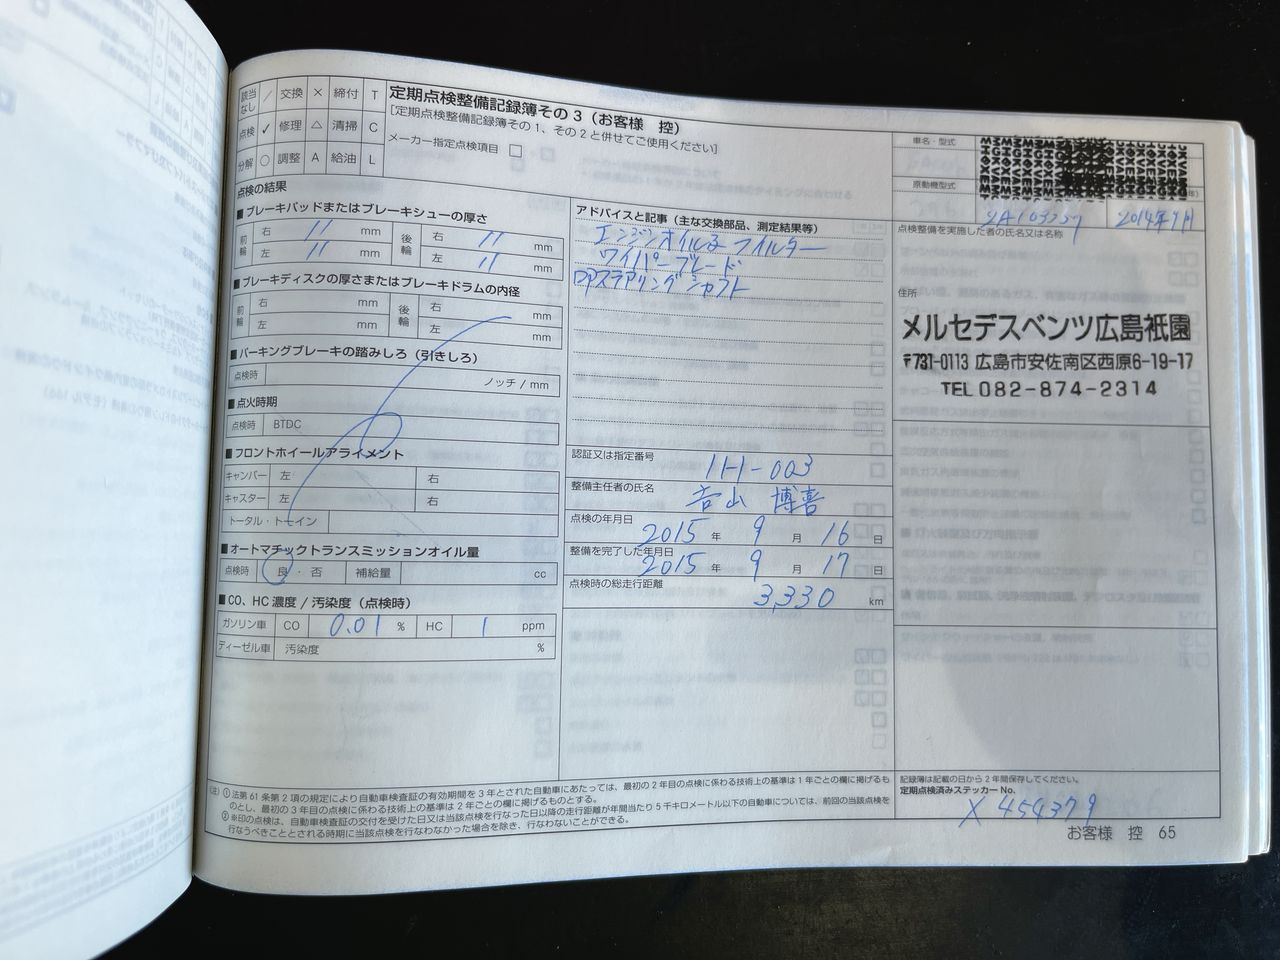 該当なし ／ 交換 × 締付 T
点検 ✓ 修理 △ 清掃 C
分解 ○ 調整 A 給油 L
定期点検整備記録簿その3（お客様　控）
[定期点検整備記録簿その1、その2と併せてご使用ください]
メーカー指定点検項目 □
点検の結果
■ ブレーキパッドまたはブレーキシューの厚さ
前輪 右 11 mm 後輪 右 11 mm
左 11 mm 左 11 mm
■ ブレーキディスクの厚さまたはブレーキドラムの内径
前輪 右 mm 後輪 右 mm
左 mm 左 mm
■ パーキングブレーキの踏みしろ（引きしろ）
点検時 ノッチ / mm
■ 点火時期
点検時 BTDC
■ フロントホイールアライメント
キャンバー 左 右
キャスター 左 右
トータル・トーイン
■ オートマチックトランスミッションオイル量
点検時 良・否 補給量 cc
■ CO、HC 濃度 / 汚染度（点検時）
ガソリン車 CO 0.01 % HC 1 ppm
ディーゼル車 汚染度 %
アドバイスと記事（主な交換部品、測定結果等）
エンジンオイル& フィルター
ワイパーブレード
DPステアリングシャフト
認証又は指定番号 1H-003
整備主任者の氏名 吉山 博喜
点検の年月日
2015 年 9 月 16 日
整備を完了した年月日
2015 年 9 月 17 日
点検時の総走行距離
3,330 km
車名・型式
原動機型式
2014年9月
点検整備を実施した者の氏名又は名称
住所
メルセデスベンツ広島祇園
〒731-0113 広島市安佐南区西原6-19-17
TEL 082-874-2314
記録簿は記載の日から2年間保存してください。
定期点検済みステッカー No.
X 454379
お客様　控　65
（注）① 法第61条第2項の規定により自動車検査証の有効期間を3年とされた自動車にあたっては、最初の2年目の点検に係わる技術上の基準は1年ごとの欄に掲げるも
のとし、最初の3年目の点検に係わる技術上の基準は2年ごとの欄に掲げるものとする。
② ※印の点検は、自動車検査証の交付を受けた日又は当該点検を行なった日以降の走行距離が年間当たり5千キロメートル以下の自動車については、前回の当該点検を
行なうべきこととされる時期に当該点検を行なわなかった場合を除き、行なわないことができる。